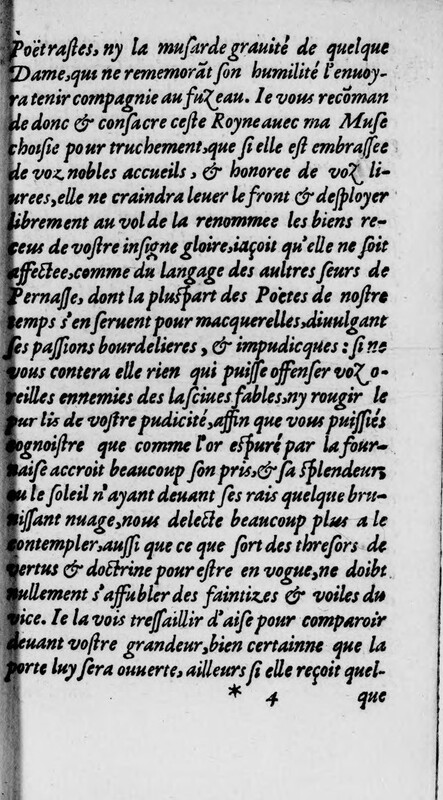 Poëtrastes, ny la musarde grauité de quelque
Dame, qui ne rememorãt son humilité l'enuoy-
ra tenir compagnie au fuzeau. Ie vous recõman
de donc & consacre ceste Royne auec ma Muse
choisie pour truchement, que si elle est embrassee
de voz nobles accueils, & honoree de voz li-
urees, elle ne craindra leuer le front & desployer
librement au vol de la renommee les biens re-
ceus de vostre insigne gloire, iaçoit qu'elle ne soit
affectee, comme du langage des aultres seurs de
Pernasse, dont la pluspart des Poëtes de nostre
temps s'en seruent pour macquerelles, diuulgant
ses passions bourdelieres, & impudicques : si ne
vous contera elle rien qui puisse offenser voz o-
reilles ennemies des lasciues fables, ny rougir le
pur lis de vostre pudicité, affin que vous puissiés
cognoistre que comme l'or espuré par la four-
naise accroit beaucoup son pris, & sa splendeur,
ou le soleil n'ayant deuant ses rais quelque bru-
nissant nuage, nous delecte beaucoup plus a le
contempler, aussi que ce que sort des thresors de
vertus & doctrine pour estre en vogue, ne doibt
nullement s'affubler des faintizes & voiles du
vice. Ie la vois tressaillir d'aise pour comparoir
deuant vostre grandeur, bien certainne que la
porte luy sera ouuerte, ailleurs si elle reçoit quel-
* 4 que